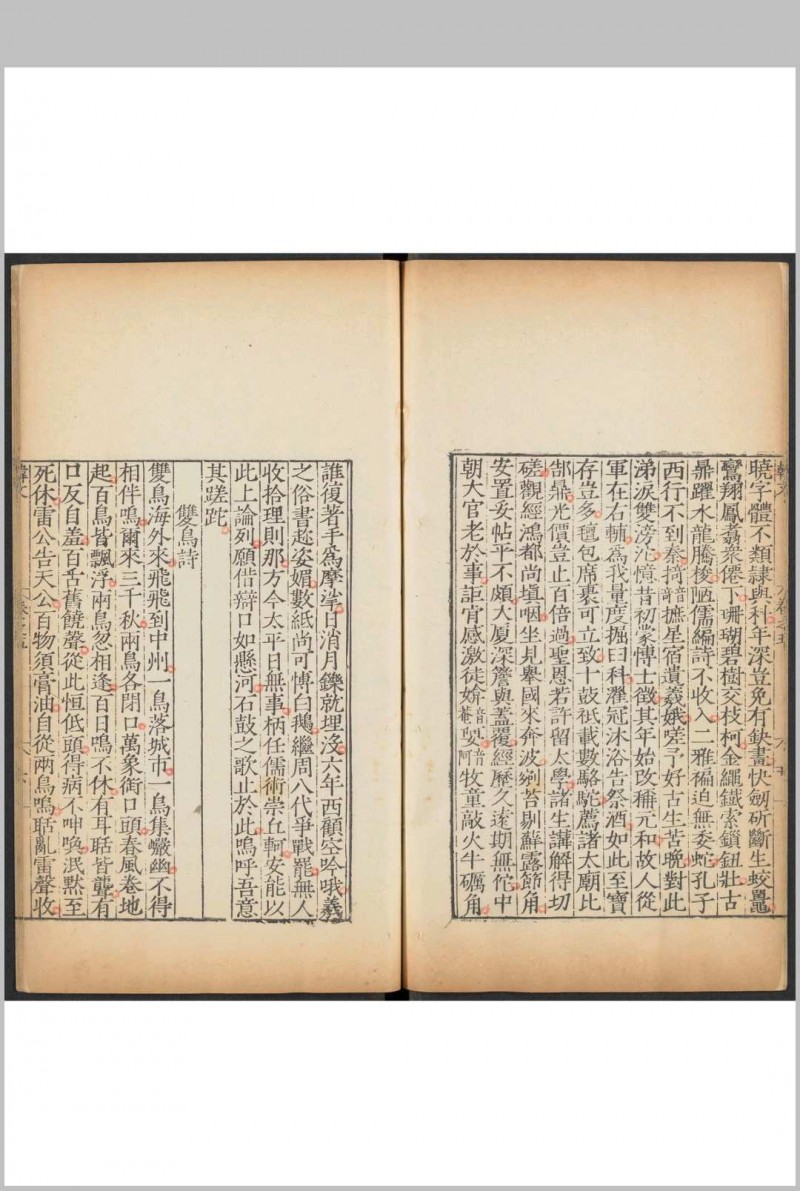 曉字體不類隷與科年深豈免有鈌畫快劒斫斷生蛟鼉
鸞翔鳳翥衆僊下珊瑚碧樹交枝柯金繩鐵索鎖鈕壯古
鼎躍水龍騰梭陋儒編詩不收入二雅褊迫無委蛇孔子
西行不到秦掎音摭星宿遺羲娥嗟予好古生苦晚對此
涕淚雙滂沱憶昔初蒙博士徵其年始改稱元和故人從
軍在右輔爲我量度掘臼科濯冠沐浴告祭酒如此至寶
存豈多氊包席裹可立致十鼓祇載數駱駝薦諸太廟比
郜鼎光價豈止百倍過聖恩若許留太學諸生講解得切
磋觀經鴻都尚填咽坐見舉國來奔波剜苔剔蘚露節角
安置妥帖平不頗大厦深簷與蓋覆經歷久遠期無佗中
朝大官老於事詎肎感激徒媕音菴娿音阿牧童敲火牛礪角
誰復著手爲摩挲日消月鑠就埋沒六年西顧空吟哦羲
之俗書趂姿媚數紙尚可博白鵝繼周八代爭戰罷無人
收拾理則那方今太平日無事柄任儒術崇丘軻安能以
此上論列願借辯口如懸河石鼓之歌止於此嗚呼吾意
其蹉跎
雙鳥詩
雙鳥海外來飛飛到中州一鳥落城市一鳥集巖幽不得
相伴鳴爾來三千秋兩鳥各閉口萬象銜口頭春風卷地
起百鳥皆飄浮兩鳥忽相逢百日鳴不休有耳聒皆聾有
口反自羞百舌舊饒聲從此恒低頭得病不呻喚泯黙至
死休雷公告天公百物須膏油自從兩鳥鳴聒亂雷聲收